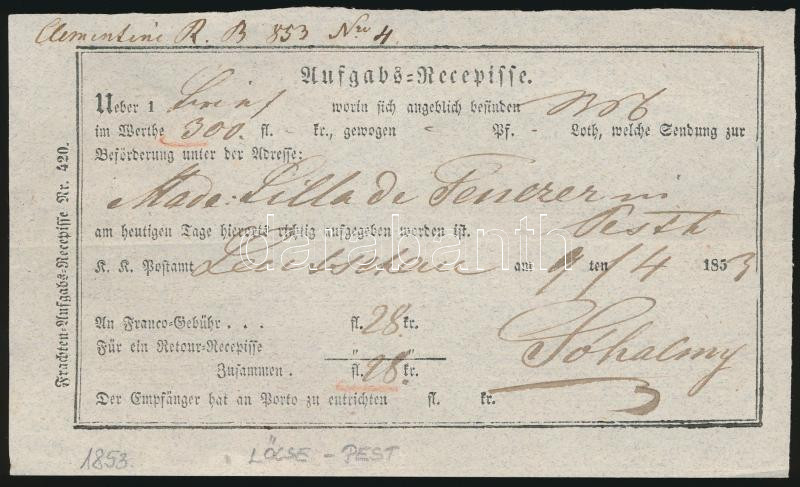 Clementine R. B 853 Nro 4.
Aufgabs=Recepisse.
Ueber 1 Brief worin sich angeblich befinden
im Werthe 300. fl. - kr., gewogen - Pf. - Loth, welche Sendung zur
Beförderung unter der Adresse:
Made: Lilla de
am heutigen Tage hierorts richtig aufgegeben worden ist. Pesth
K. K. Postamt Leutschau am 9 ten /4 1853
An Franco=Gebühr . . . fl. 28 kr.
Für ein Retour=Recepisse " "
Zusammen . fl. 28. kr.
Der Empfänger hat an Porto zu entrichten fl. kr.
Frachten=Aufgabs=Recepisse Nr. 420.
darabanth
1853.
LÖCSE - PEST